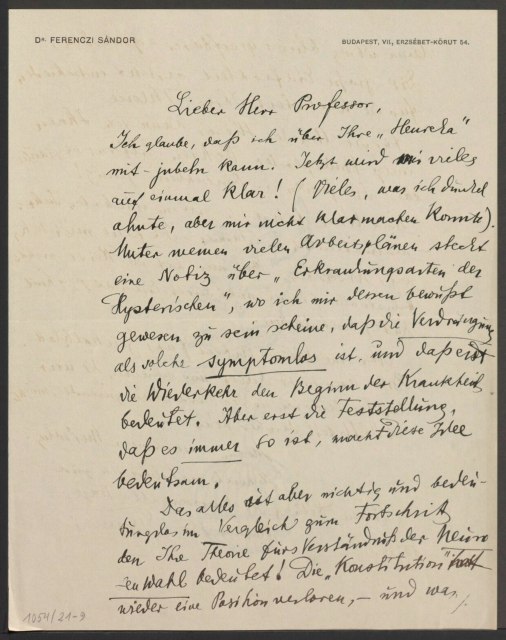 Dr. FERENCZI SÁNDOR
BUDAPEST, VII., ERZSÉBET-KÖRUT 54.
Lieber Herr Professor,
Ich glaube, daß ich über Ihre „Heureka"
mit-jubeln kann. Jetzt wird mir vieles
auf einmal klar! (Vieles, was ich dunkel
ahnte, aber mir nicht klar machen konnte).
Unter meinen vielen Arbeitsplänen steckt
eine Notiz über „Erkrankungsarten der
Hysterischen", wo ich mir dessen bewußt
gewesen zu sein scheine, daß die Verdrängung
als solche symptomlos ist, und daß erst
die Wiederkehr den Beginn der Krankheit
bedeutet. Aber erst die Feststellung,
daß es immer so ist, macht diese Idee
bedeutsam.
Das alles ist aber nichtig und bedeu-
tungslos im Vergleich zum Fortschritt
den Ihre Theorie fürs Verständniß der Neuro
enwahl bedeutet! Die „Konstitution" hat
wieder eine Position verloren, – und was
1054/21-9